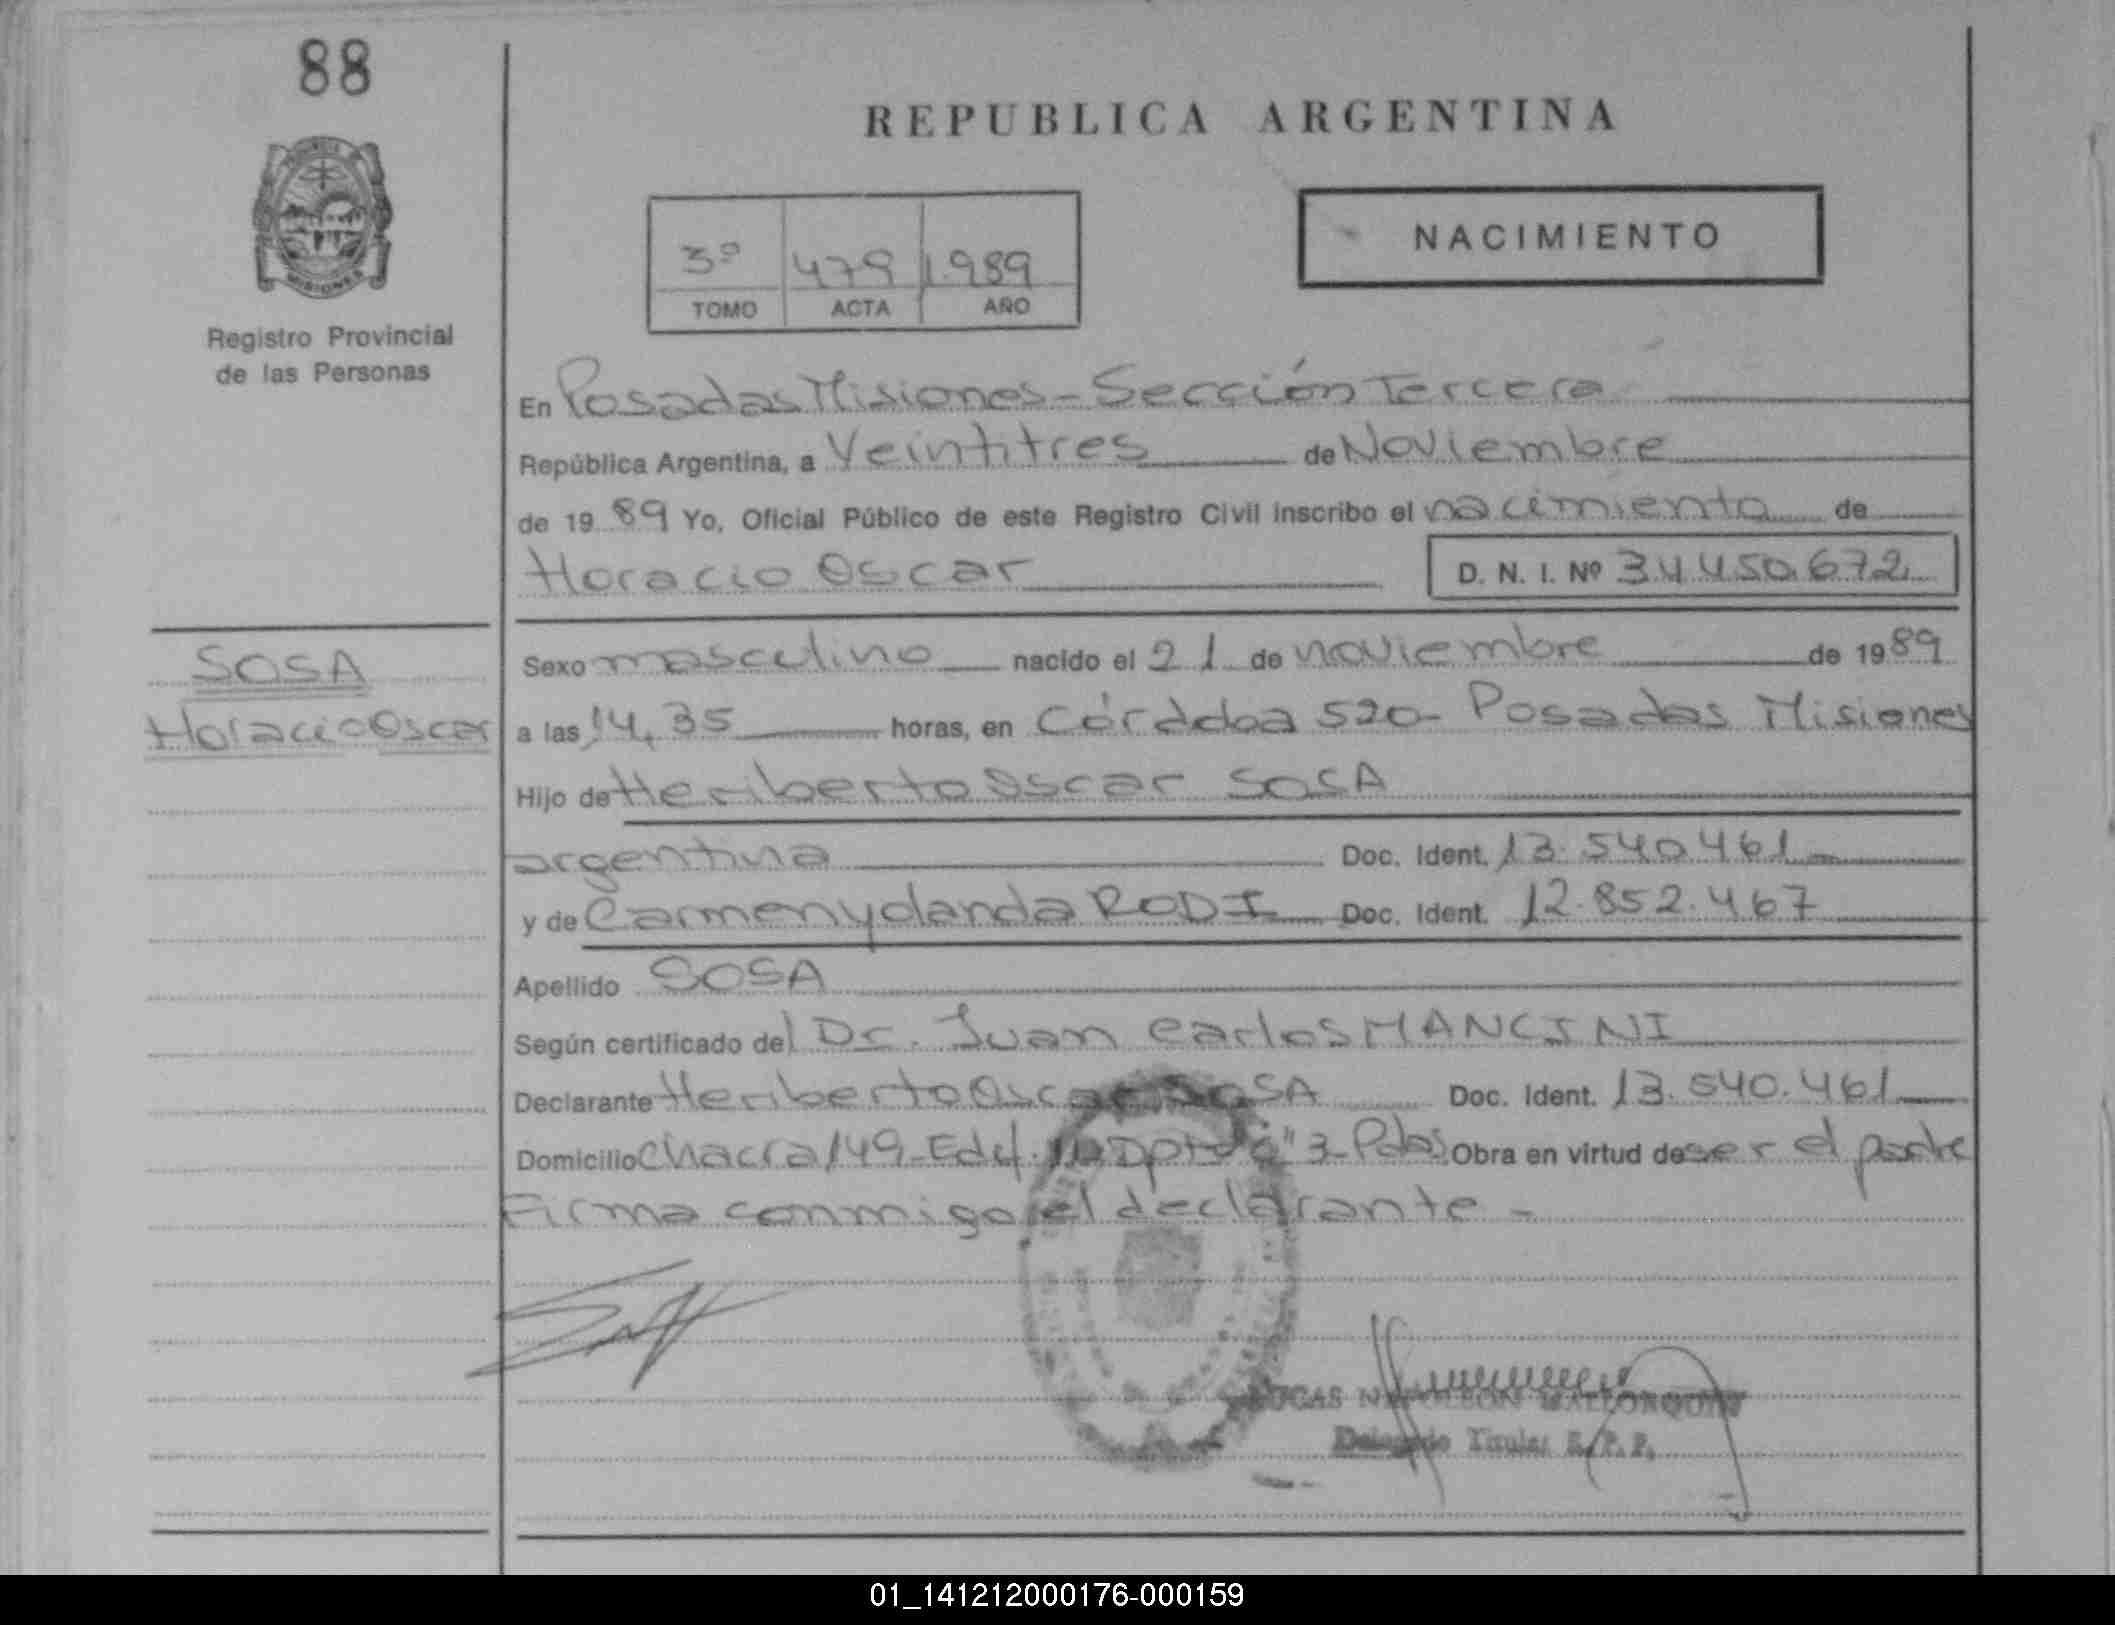 88
REPUBLICA ARGENTINA
NACIMIENTO
3º 479 1989
TOMO ACTA AÑO
MISIONES
Registro Provincial
de las Personas
En Posadas Misiones - Sección Tercera
República Argentina, a Veintitres de Noviembre
de 1989 Yo, Oficial Público de este Registro Civil inscribo el nacimiento de
Horacio Oscar D. N. I. Nº 34.450.672
SOSA
Horacio Oscar
Sexo masculino nacido el 21 de noviembre de 1989
a las 14,35 horas, en Córdoba 520 - Posadas Misiones
Hijo de Heriberto Oscar SOSA
argentina Doc. Ident. 13.540.461
y de Carmen Yolanda RODI Doc. Ident. 12.852.467
Apellido SOSA
Según certificado del Dr. Juan Carlos MANCINI
Declarante Heriberto Oscar SOSA Doc. Ident. 13.540.461
Domicilio Chacra 149 - Edif. Dpto 3 - Pdas Obra en virtud de ser el padre
Firma conmigo el declarante -
LUCAS NAPOLEON MALLORQUIN
Delegado Titular R. P. P.
01_141212000176-000159